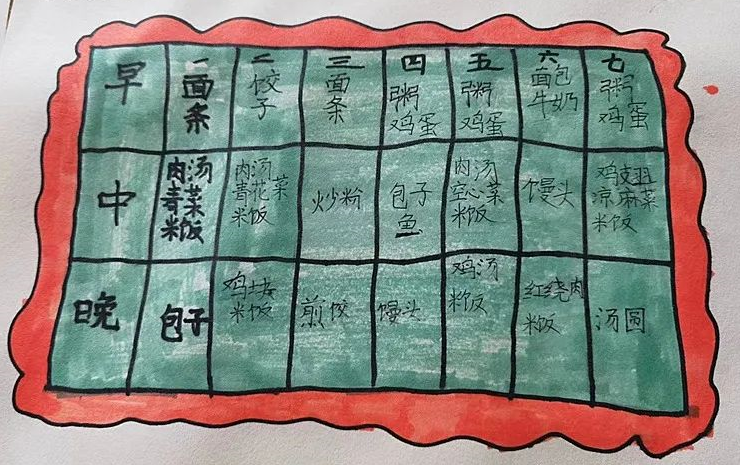 早
一
面
条
二
饺
子
三
面
条
四
粥
鸡蛋
五
粥
鸡蛋
六
面包
牛奶
七
粥
鸡蛋
中
肉汤
青菜
米饭
肉汤
青花菜
米饭
炒粉
包子
鱼
肉汤
空心菜
米饭
馒头
鸡翅
凉麻菜
米饭
晚
包子
鸡块
米饭
煎饺
馒头
鸡汤
米饭
红绕肉
米饭
汤圆